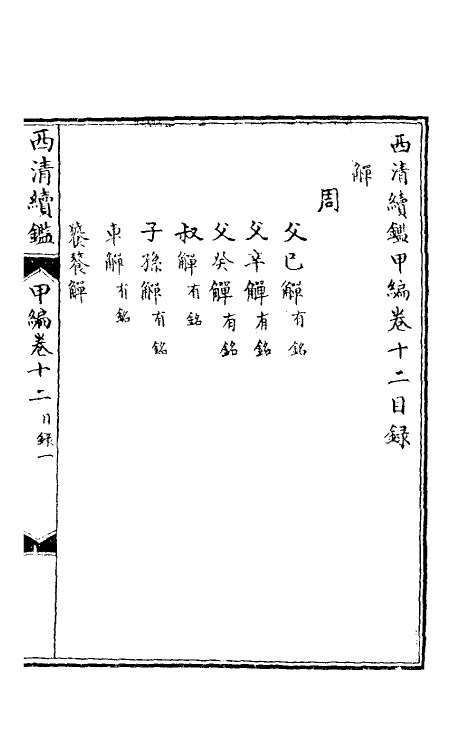 西清續鑑甲編卷十二目錄
觶
周
父己觶有銘
父辛觶有銘
父癸觶有銘
叔觶有銘
子孫觶有銘
車觶有銘
饕餮觶
西清續鑑 甲編卷十二 目錄 一